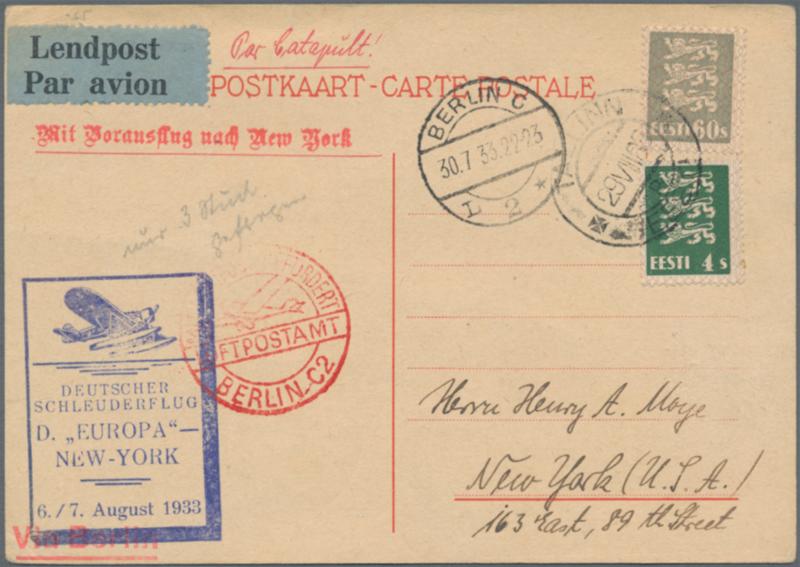 Lendpost
Par avion
Par Catapult!
POSTKAART-CARTE POSTALE
Mit Vorausflug nach New York
BERLIN C
30.7 33.22-23
2
29 VII
EESTI 60s
EESTI 4 s
nur 3 Stück
LUFTPOSTAMT
BERLIN C2
DEUTSCHER
SCHLEUDERFLUG
D. „EUROPA"—
NEW-YORK
6./7. August 1933
Via Berlin
Herrn Henry A. Moye
New York (U.S.A.)
163 East, 89 th Street